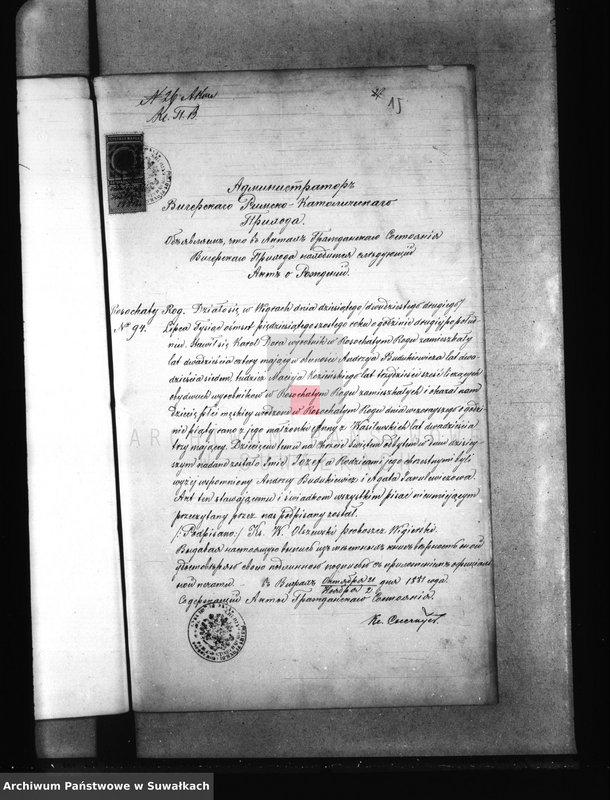 № 26 Акт
Кс. П. В.
15
Администраторъ
Вигерскаго Римско-Католическаго
Прихода.
Объявляетъ, что въ Актахъ Гражданскаго Состоянія
Вигерскаго Прихода находится слѣдующій
Актъ о Рожденіи.
Rosochaty Rog. Działo się w Wigrach dnia dziesiątego /dwudziestego drugiego/
№ 94. Lipca Tysiąc ośmset pięćdziesiątego szóstego roku o godzinie drugiej po połud
niu. Stawił się Karol Dora wyrobnik w Rosochatym Rogu zamieszkały
lat dwadzieścia cztery mający w obecności Andrzeja Budukiewicza lat dwa
dzieścia siedem, tudzież Macieja Kozińskiego lat trzydzieści sześć liczących
obydwuch wyrobników w Rosochatym Rogu zamieszkałych i okazał nam
dziecię płci męskiej urodzone w Rosochatym Rogu dnia wczorajszego o godzi
nie piątej rano z jego małżonki Anny z Wasilewskich lat dwadzieścia
trzy mającej. Dziecięciu temu na Chrzcie Świętem odbytem w dniu dzisiej
szym nadane zostało Imie Józef a Rodzicami jego chrzestnymi byli
wyżej wspomniony Andrzej Budukiewicz i Agata Danilewiczowa.
Akt ten stawającemu i świadkom wszystkim pisać nieumiejącym
przeczytany przez nas podpisany został.
/:Podpisano:/ Ks. W. Olszewski proboszcz Wigierski.
Выдавая настоящую выпись изъ метрическихъ книгъ вѣрность оной
удостовѣряю своею подлинною подписью съ приложеніемъ оффиціаль
ной печати. — Въ Виграхъ Октября 21 / Ноября 2 дня 1881 года.
Содержащій Акты Гражданскаго Состоянія
Кс.
Archiwum Państwowe w Suwałkach